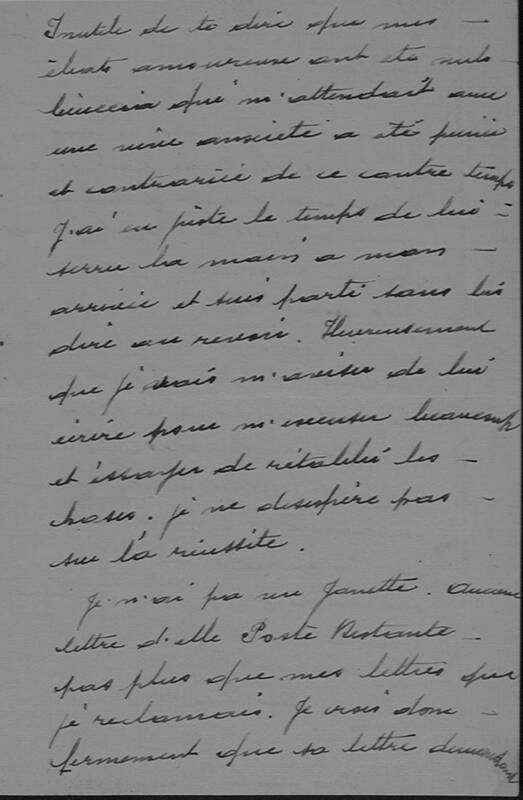 Inutile de te dire que mes -
ébats amoureuse ont été nuls
qui m'attendait avec
une vive anxiété a été peinée
et contrariée de ce contre temps
J'ai eu juste le temps de lui -
serrer la main a mon -
arrivée et suis parti sans lui
dire au revoir. Heureusement
que je vais m'aviser de lui
écrire pour m'excuser beaucoup
et éssayer de rétablir les -
choses. je ne desespère pas -
sur la réussite.
Je n'ai pa vu Janette. aucune
lettre d'elle Poste Restante -
pas plus que mes lettres que
je reclamais. Je crois donc -
fermement que sa lettre demandant